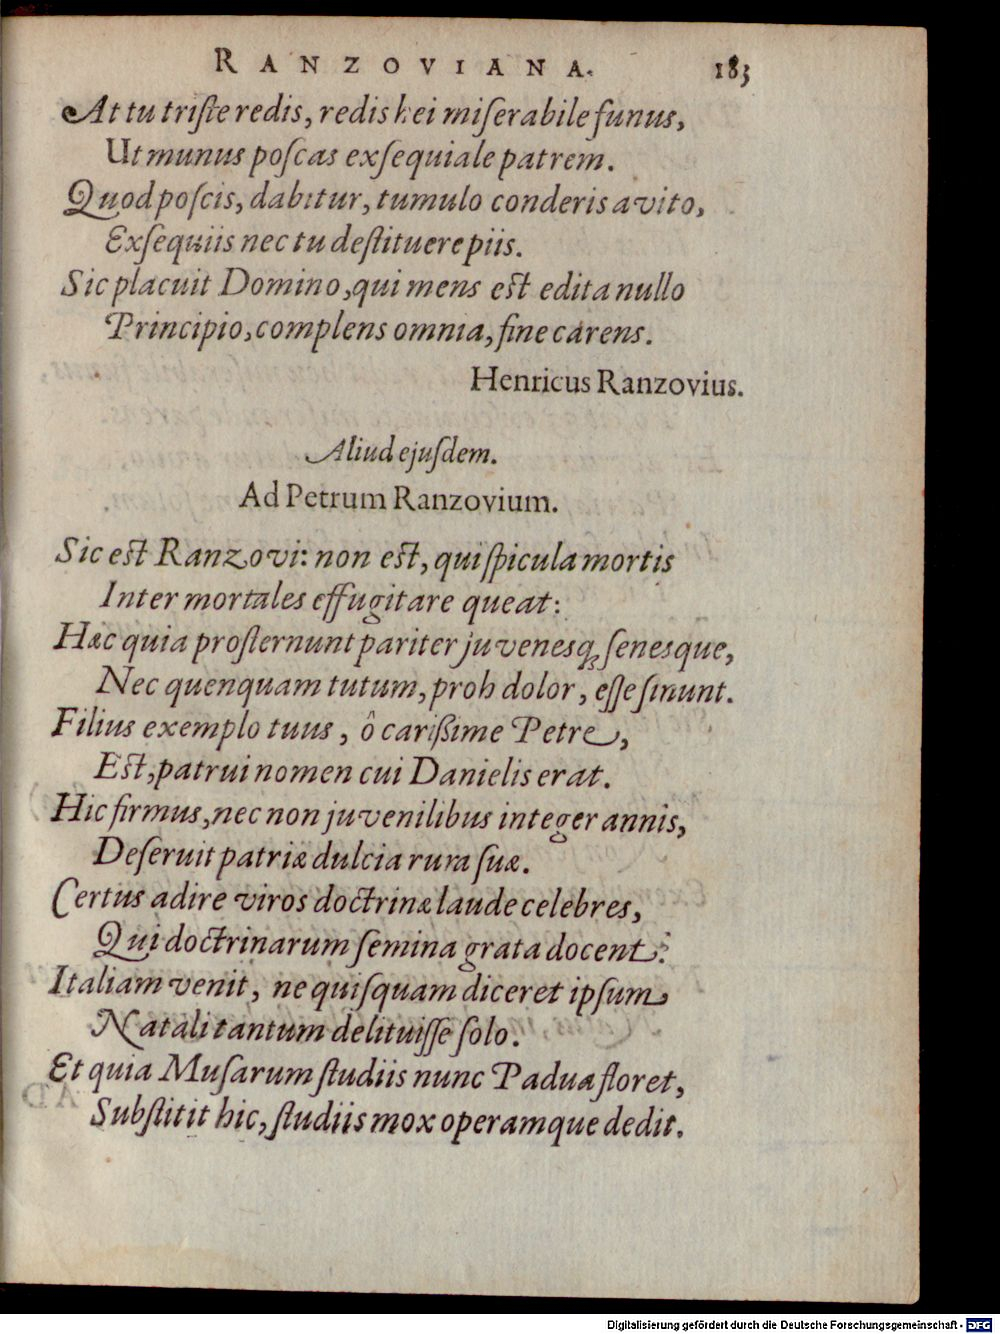 RANZOVIANA. 183
At tu triste redis, redis hei miserabile funus,
Ut munus poscas exsequiale patrem.
Quod poscis, dabitur, tumulo conderis avito,
Exsequiis nec tu destituere piis.
Sic placuit Domino, qui mens est edita nullo
Principio, complens omnia, fine carens.
Henricus Ranzovius.
Aliud ejusdem.
Ad Petrum Ranzovium.
Sic est Ranzovi: non est, qui spicula mortis
Inter mortales effugitare queat:
Hæc quia prosternunt pariter juvenesq; senesque,
Nec quenquam tutum, proh dolor, esse sinunt.
Filius exemplo tuus, ô carißime Petre,
Est, patrui nomen cui Danielis erat.
Hic firmus, nec non juvenilibus integer annis,
Deseruit patriæ dulcia rura suæ.
Certus adire viros doctrinæ laude celebres,
Qui doctrinarum semina grata docent:
Italiam venit, ne quisquam diceret ipsum
Natali tantum delituisse solo.
Et quia Musarum studiis nunc Padua floret,
Substitit hic, studiis mox operamque dedit.
Digitalisierung gefördert durch die Deutsche Forschungsgemeinschaft - DFG